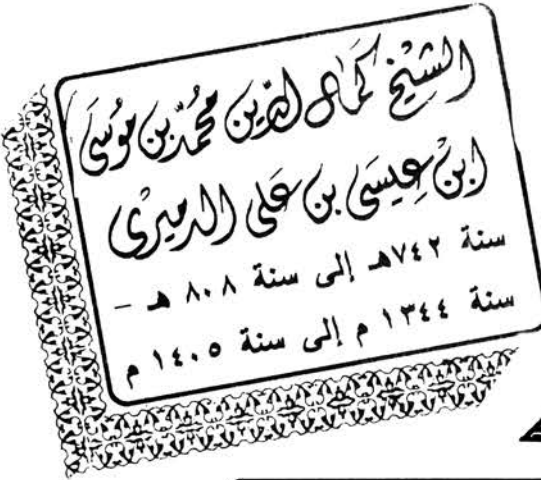 الشيخ كمال الدين محمد بن موسى
ابن عيسى بن على الدميرى
سنة ٧٤٢هـ إلى سنة ٨٠٨ هـ –
سنة ١٣٤٤ م إلى سنة ١٤٠٥ م